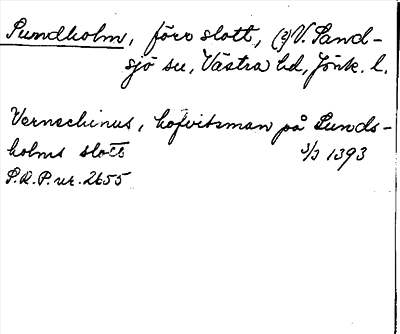 Sundholm, förr slott, (?) V. Sand-
sjö sn, Västra hd, Jönk. l.
Vernechinus, hofvitsman på Sunds-
holms slott 3/3 1393
S.R.P. nr. 2655